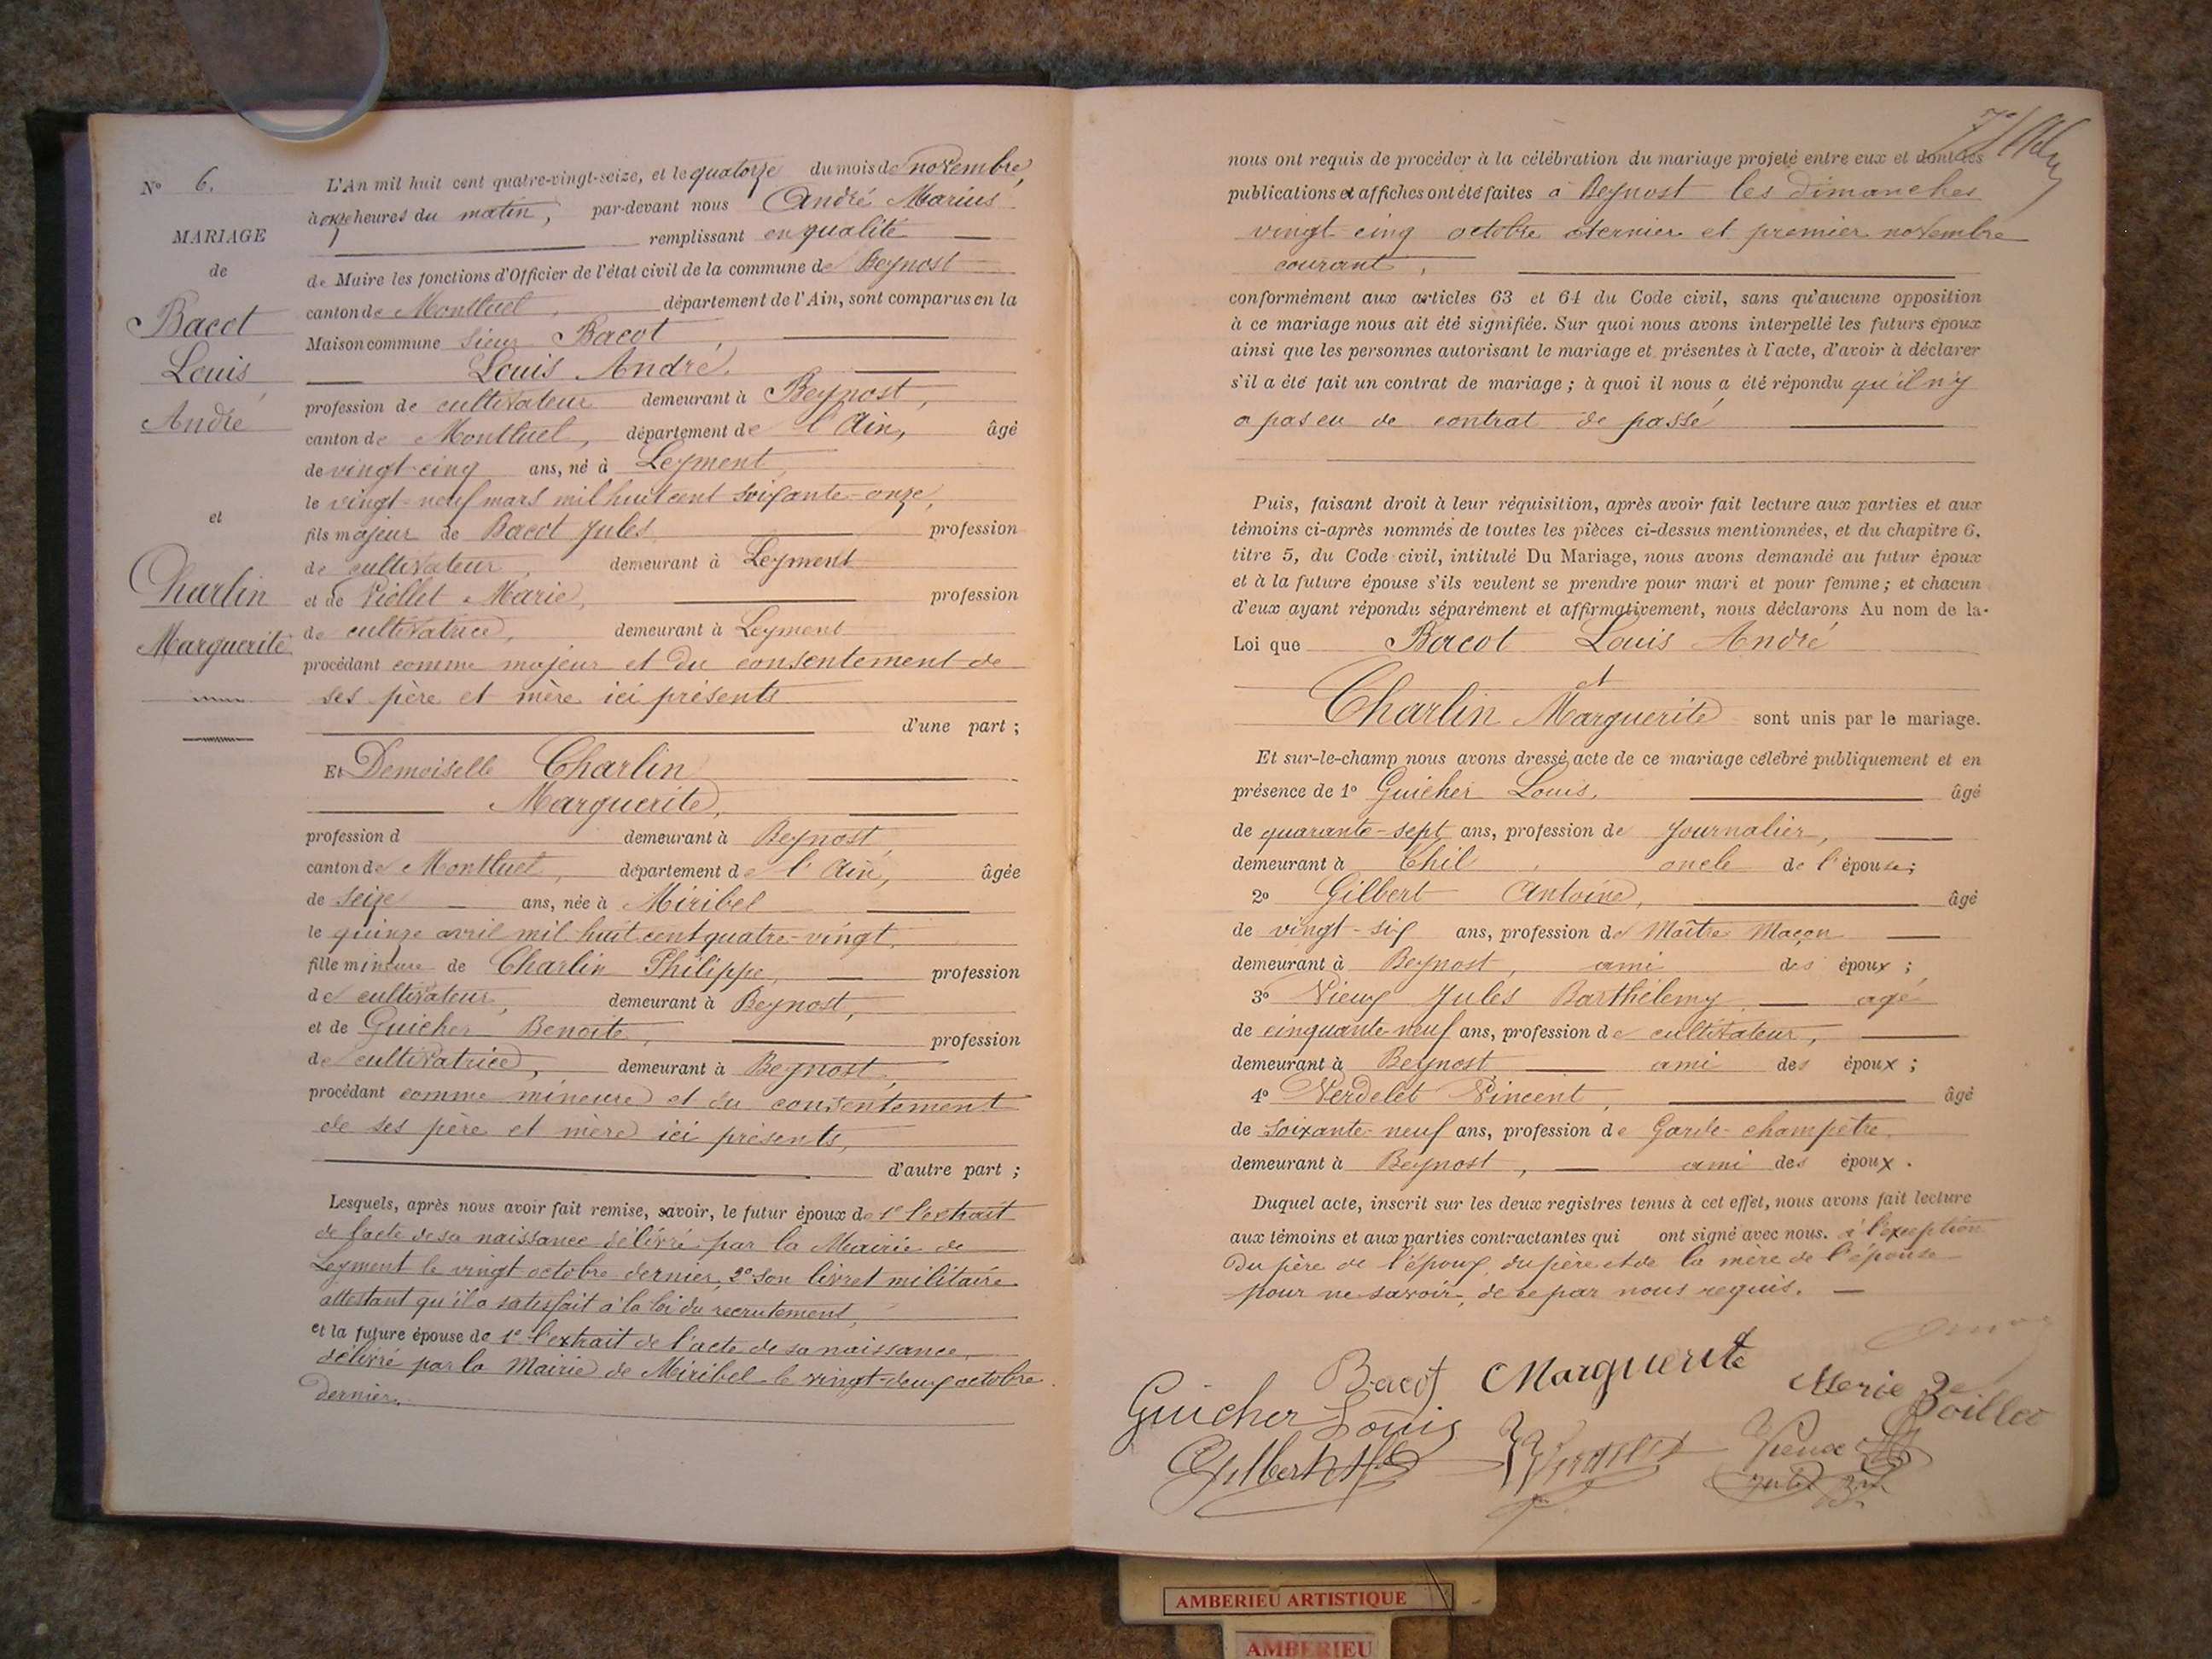 N° 6.
MARIAGE
de
Bacot
Louis
André
et
Charlin
Marguerite
L'An mil huit cent quatre-vingt-seize, et le quatorze du mois de novembre,
à onze heures du matin, par-devant nous André Marius
remplissant en qualité
de Maire les fonctions d'Officier de l'état civil de la commune de Beynost
canton de Montluel, département de l'Ain, sont comparus en la
Maison commune sieur Bacot,
Louis André.
profession de cultivateur demeurant à Beynost,
canton de Montluel, département de l'Ain, âgé
de vingt-cinq ans, né à Leyment,
le vingt-neuf mars mil huit cent soixante-onze,
fils majeur de Bacot Jules profession
de cultivateur, demeurant à Leyment
et de Viollet Marie, profession
de cultivatrice, demeurant à Leyment
procédant comme majeur et du consentement de
ses père et mère ici présents
d'une part ;
Et Demoiselle Charlin
Marguerite,
profession d demeurant à Beynost,
canton de Montluel, département de l'Ain, âgée
de seize ans, née à Miribel
le quinze avril mil huit cent quatre-vingt,
fille mineure de Charlin Philippe, profession
de cultivateur, demeurant à Beynost,
et de Guicher Benoite, profession
de cultivatrice, demeurant à Beynost,
procédant comme mineure et du consentement
de ses père et mère ici présents,
d'autre part ;
Lesquels, après nous avoir fait remise, savoir, le futur époux de 1° l'extrait
de l'acte de sa naissance délivré par la Mairie de
Leyment le vingt octobre dernier, 2° son livret militaire
attestant qu'il a satisfait à la loi du recrutement,
et la future épouse de 1° l'extrait de l'acte de sa naissance,
délivré par la Mairie de Miribel le vingt-deux octobre
dernier.
nous ont requis de procéder à la célébration du mariage projeté entre eux et dont les
publications et affiches ont été faites à Beynost les dimanches
vingt cinq octobre dernier et premier novembre
courant,
conformément aux articles 63 et 64 du Code civil, sans qu'aucune opposition
à ce mariage nous ait été signifiée. Sur quoi nous avons interpellé les futurs époux
ainsi que les personnes autorisant le mariage et présentes à l'acte, d'avoir à déclarer
s'il a été fait un contrat de mariage ; à quoi il nous a été répondu qu'il n'y
a pas eu de contrat de passé
Puis, faisant droit à leur réquisition, après avoir fait lecture aux parties et aux
témoins ci-après nommés de toutes les pièces ci-dessus mentionnées, et du chapitre 6,
titre 5, du Code civil, intitulé Du Mariage, nous avons demandé au futur époux
et à la future épouse s'ils veulent se prendre pour mari et pour femme ; et chacun
d'eux ayant répondu séparément et affirmativement, nous déclarons Au nom de la
Loi que Bacot Louis André
et
Charlin Marguerite sont unis par le mariage.
Et sur-le-champ nous avons dressé acte de ce mariage célébré publiquement et en
présence de 1° Guicher Louis, âgé
de quarante-sept ans, profession de Journalier,
demeurant à Thil, oncle de l'épouse;
2° Gilbert Antoine, âgé
de vingt-six ans, profession de Maître Maçon
demeurant à Beynost, ami des époux ;
3° Vieux Jules Barthélemy agé
de cinquante-neuf ans, profession de cultivateur,
demeurant à Beynost ami des époux ;
4° Verdelet Vincent, âgé
de soixante-neuf ans, profession de Garde-champêtre,
demeurant à Beynost, ami des époux.
Duquel acte, inscrit sur les deux registres tenus à cet effet, nous avons fait lecture
aux témoins et aux parties contractantes qui ont signé avec nous. à l'exception
du père de l'époux, du père et de la mère de l'épouse
pour ne savoir, de ce par nous requis.
Bacot Marguerite Marie
Guicher Louis
Gilbert Vieux
AMBERIEU ARTISTIQUE
AMBERIEU